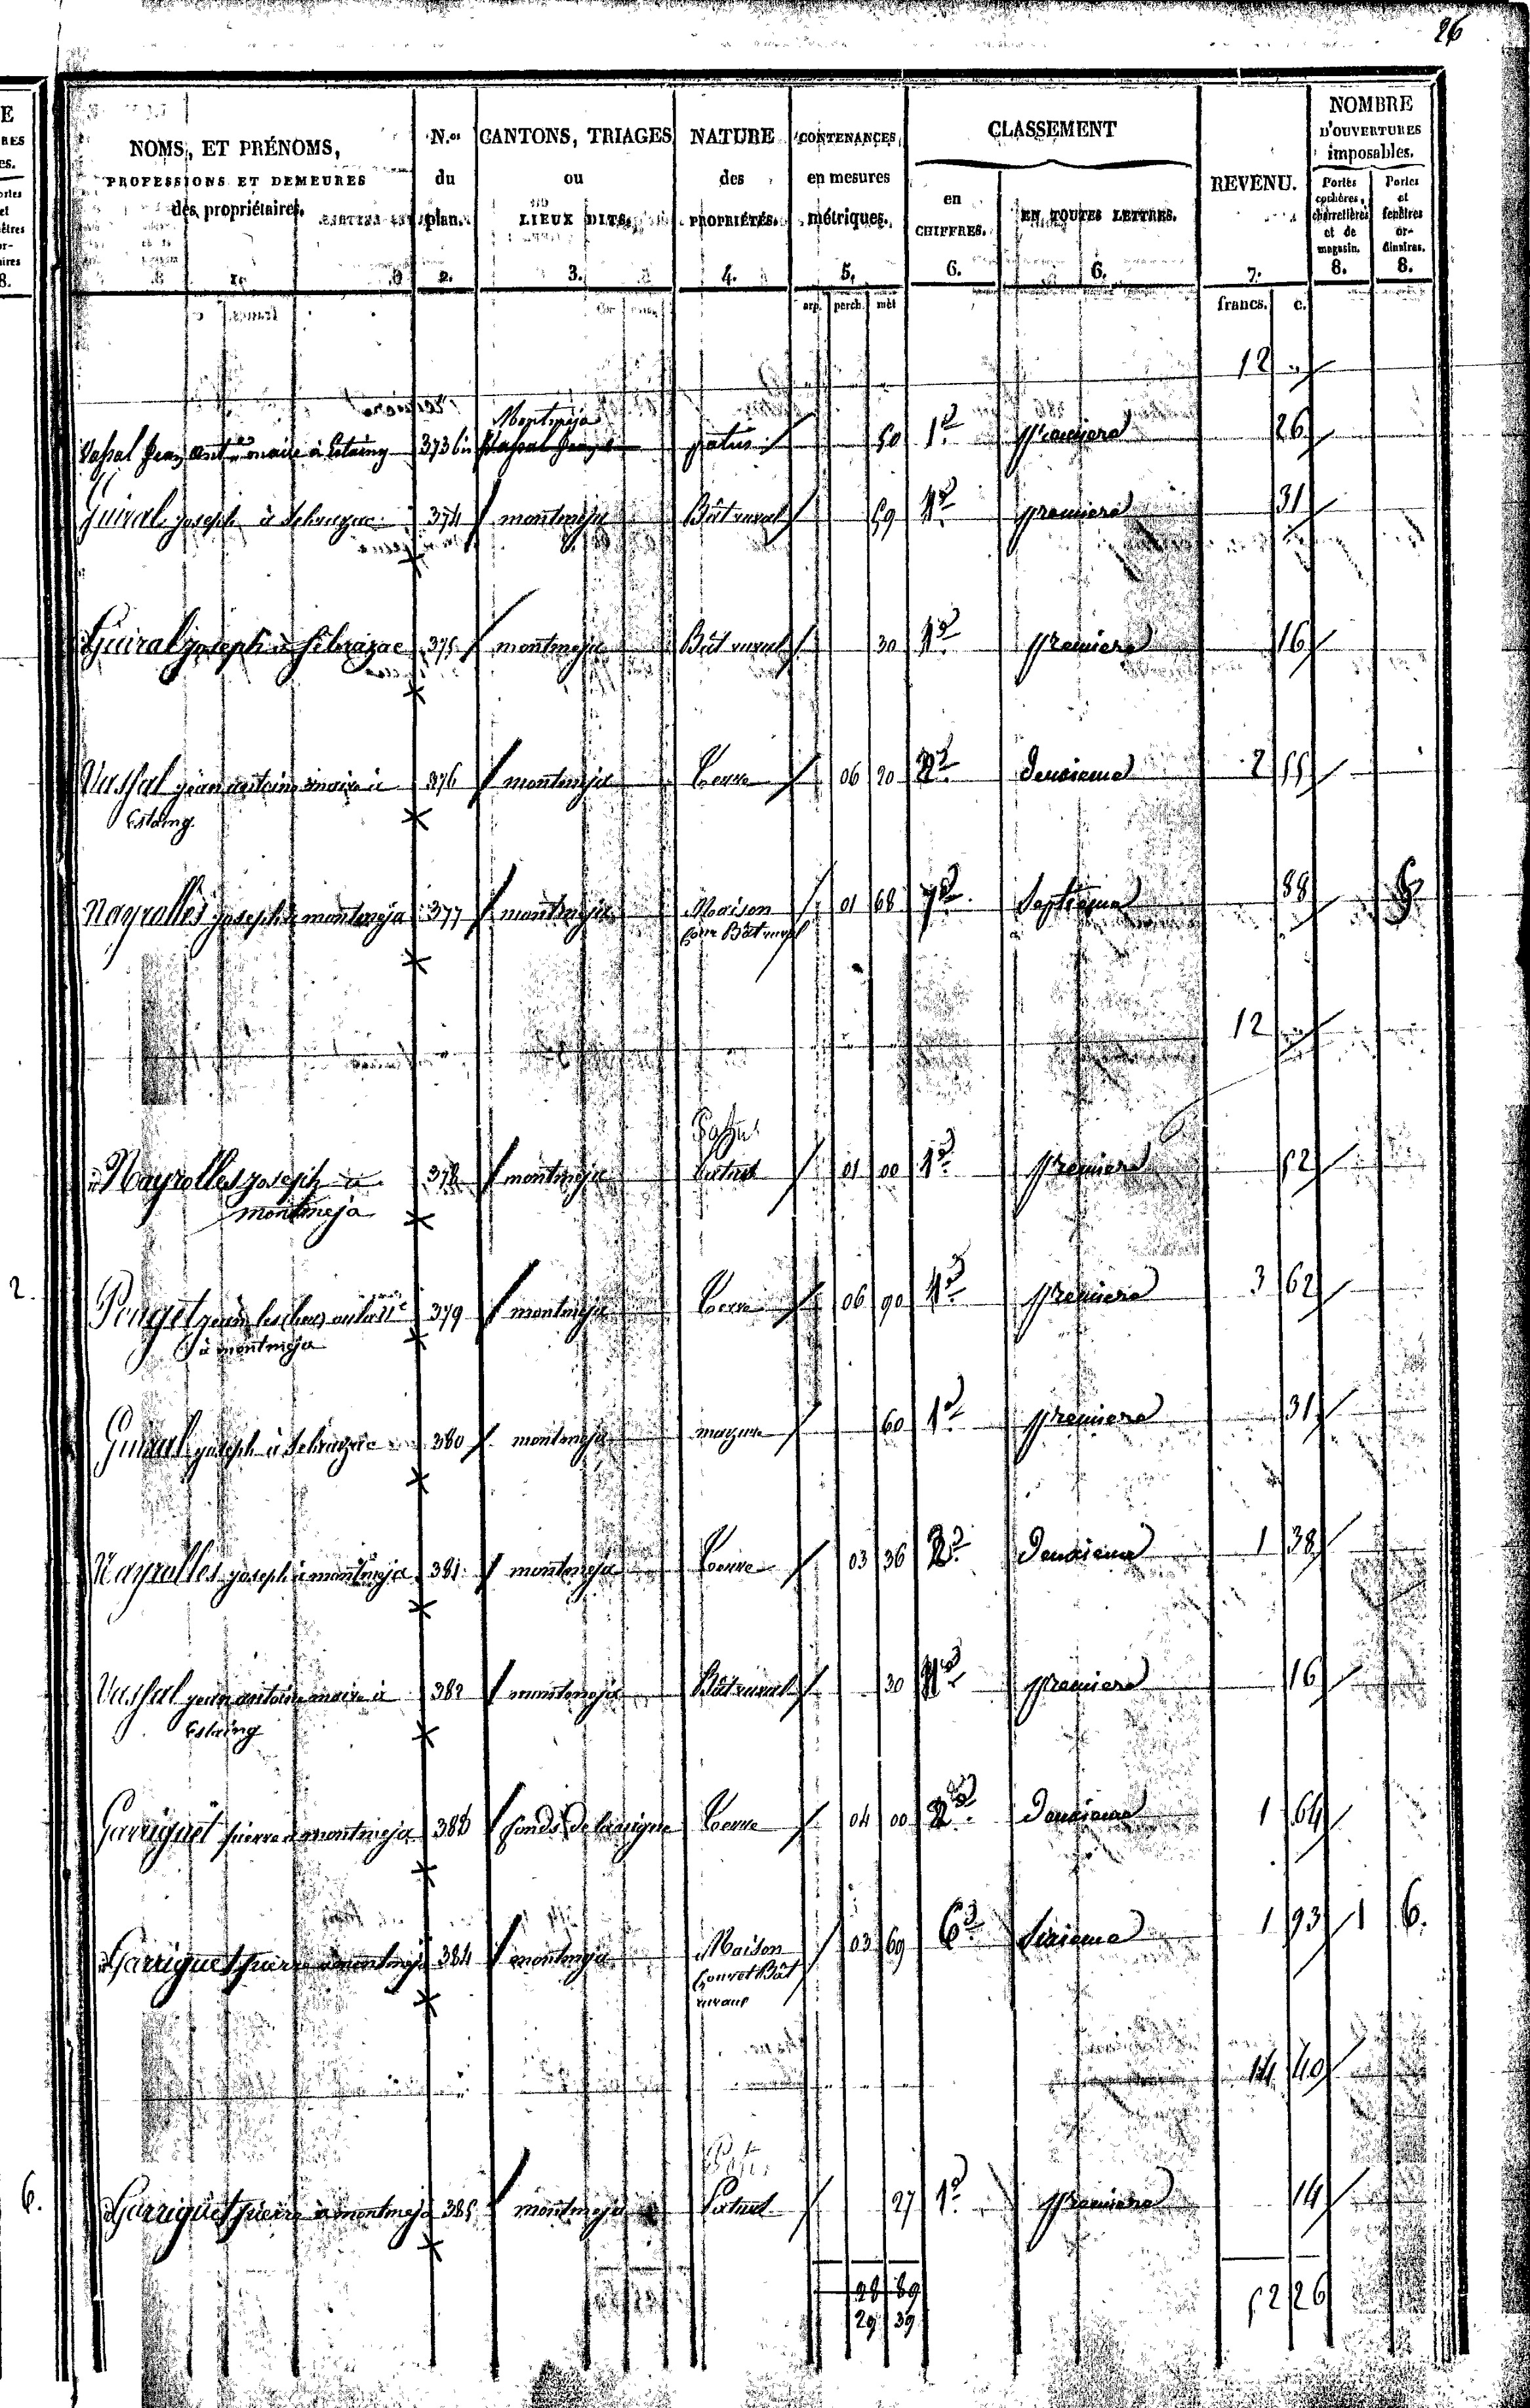 26
NOMS, ET PRÉNOMS,
PROFESSIONS ET DEMEURES
des propriétaires.
1.
N.os
du
plan.
2.
CANTONS, TRIAGES
ou
LIEUX DITS.
3.
NATURE
des
PROPRIÉTÉS.
4.
CONTENANCES
en mesures
métriques.
5.
arp. perch. mèt
CLASSEMENT
en
CHIFFRES.
6.
EN TOUTES LETTRES.
6.
REVENU.
7.
francs. c.
NOMBRE
D'OUVERTURES
imposables.
Portes
cochères,
charretières
et de
magasin.
8.
Portes
et
fenêtres
or-
dinaires.
8.
12 "
Montméja
Vassal Jean ant.ne maire à Estaing 373 bis patus 50 1re première 26
Guiral joseph à Sebrazac 374 montmeja Bât rural 59 1re première 31
Guiral joseph à Sebrazac 375 montmeja Bât rural 30 1re première 16
Vassal jean antoine maire à 376 montmeja terre 06 20 2e deuxieme 2 55
Estaing
Nayrolles joseph à montmeja 377 montmeja Maison 01 68 7e septieme 88
Cour Bât rural
12 "
Patus
Nayrolles joseph à 378 montmeja 01 00 1re premiere 52
montmeja
Pouget jean 379 montmeja terre 06 90 1re premiere 3 62
à montmeja
Guiral joseph à Sebrazac 380 montmeja mazure 60 1re premiere 31
Nayrolles joseph à montmeja 381 montmeja terre 03 36 2e deuxieme 1 38
Vassal jean antoine maire à 382 montmeja Bât rural 30 1re premiere 16
Estaing
Garriguet pierre à montmeja 383 fonds de la vigne terre 04 00 2e deuxieme 1 64
Garriguet pierre à montmeja 384 montmeja Maison 03 69 6e sixieme 1 93 1 6.
Cour et Bât
ruraux
14 40
Garriguet pierre à montmeja 385 montmeja Patus 27 1re premiere 14
28 89
29 39
52 26
2.
6.